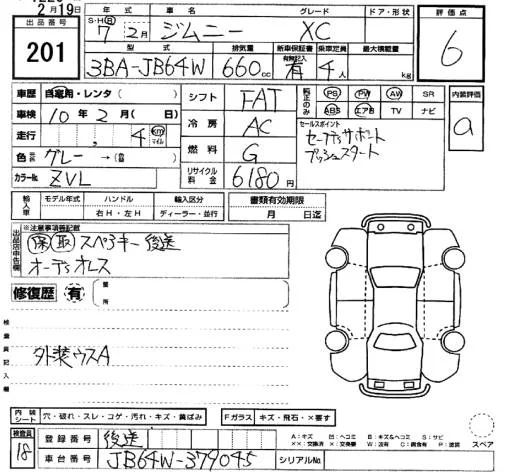 2月19日
出品番号
201
年式 車名 グレード ドア・形状
S・H(R) 7 2月 ジムニー XC
型式 排気量 新車保証書 有無記入 乗車定員 最大積載量
3BA-JB64W 660cc 有 4人 kg
評価点
6
車歴 自家用・レンタ( )
車検 10年2月( 日)
走行 , 4 km マイル
色 元色 グレー→(色替)
カラーNo. ZVL
シフト FAT
冷房 AC
燃料 G
リサイクル料金 6180円
純正のみ PS PW AW SR
ABS エアB TV ナビ
セールスポイント
セーフティサポート
プッシュスタート
内装評価
a
輸入車 モデル年式 ハンドル 輸入区分
右H・左H ディーラー・並行
書類有効期限
月 日迄
出品店申告欄
※注意事項等記載
保 取 スペアキー後送
オーディオレス
修復歴 有 箇所
検査員記入欄
外装ウスA
内装シート 穴・破れ・スレ・コゲ・汚れ・キズ・黄ばみ
Fガラス キズ・飛石・×要す
検査員 18
登録番号 後送
車台番号 JB64W-379045
シリアルNo.
A:キズ U:ヘコミ B:キズ&ヘコミ S:サビ
××:交換済 ×:要交換 W:波有 C:腐食有 P:塗装
スペア